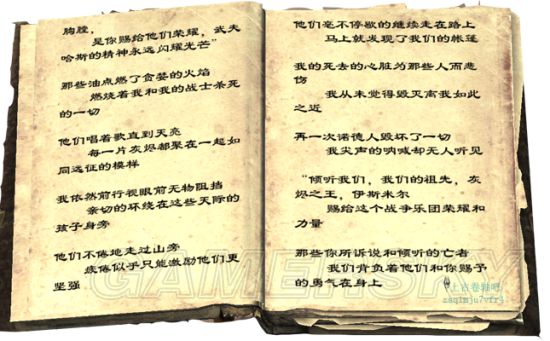 胸膛，
是你赐给他们荣耀，武夫
哈斯的精神永远闪耀光芒”
那些油点燃了贪婪的火焰
燃烧着我和我的战士杀死
的一切
他们唱着歌直到天亮
每一片灰烬都聚在一起如
同远征的模样
我依然前行视眼前无物阻挡
亲切的环绕在这些天际的
孩子身旁
他们不倦地走过山旁
疲倦似乎只能激励他们更
坚强
他们毫不停歇的继续走在路上
马上就发现了我们的帐篷
我的死去的心脏为那些人而悲
伤
我从未觉得毁灭离我如此
之近
再一次诺德人毁坏了一切
我尖声的呐喊却无人听见
“倾听我们，我们的祖先，灰
烬之王，伊斯米尔
赐给这个战争乐团荣耀和
力量
那些你所诉说和倾听的亡者
我们背负着他们和你赐予
的勇气在身上
GAMERSKY
上古卷轴吧
zaqimju7vfr4